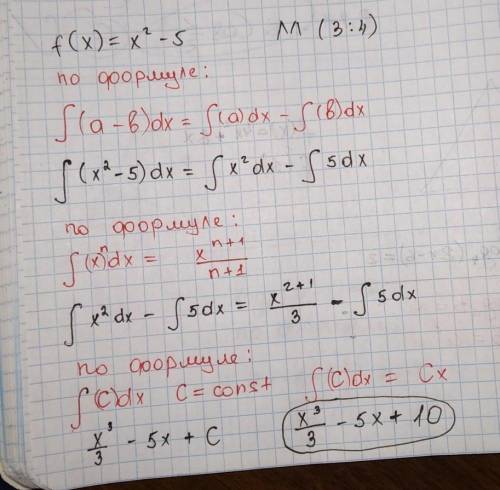 f(x) = x² - 5 M (3:4)
по формуле:
∫(a - b)dx = ∫(a)dx - ∫(b)dx
∫(x² - 5)dx = ∫x²dx - ∫5dx
по формуле:
∫(x)ⁿdx = x^(n+1)/(n+1)
∫x²dx - ∫5dx = x^(2+1)/3 - ∫5dx
по формуле:
∫(C)dx C = const ∫(C)dx = Cx
x³/3 - 5x + C x³/3 - 5x + 10